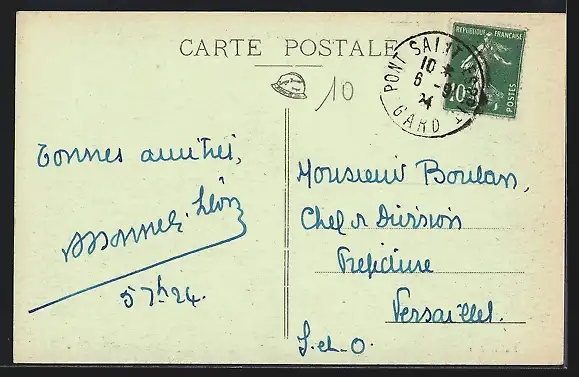 CARTE POSTALE
REPUBLIQUE FRANÇAISE
10c
POSTES
PONT SAINT ESPRIT
10 *
6 - 9
24
GARD
10
Bonnes amitiés,
Léon
5 7h 24.
Monsieur Boulan,
Chef de Division
Préfecture
Versailles.
S.-et-O.